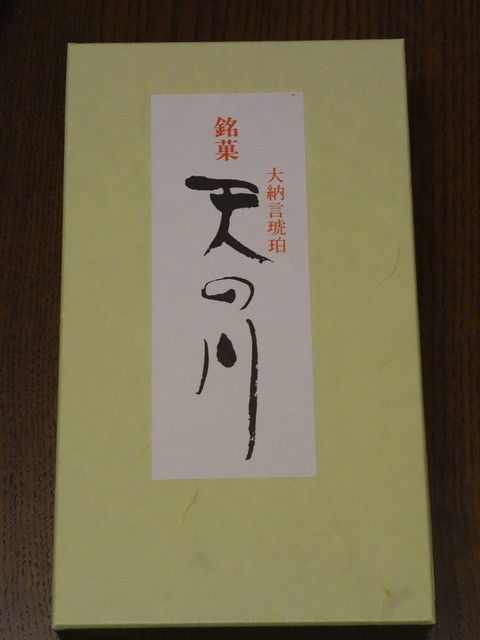 銘菓
大納言琥珀
天の川